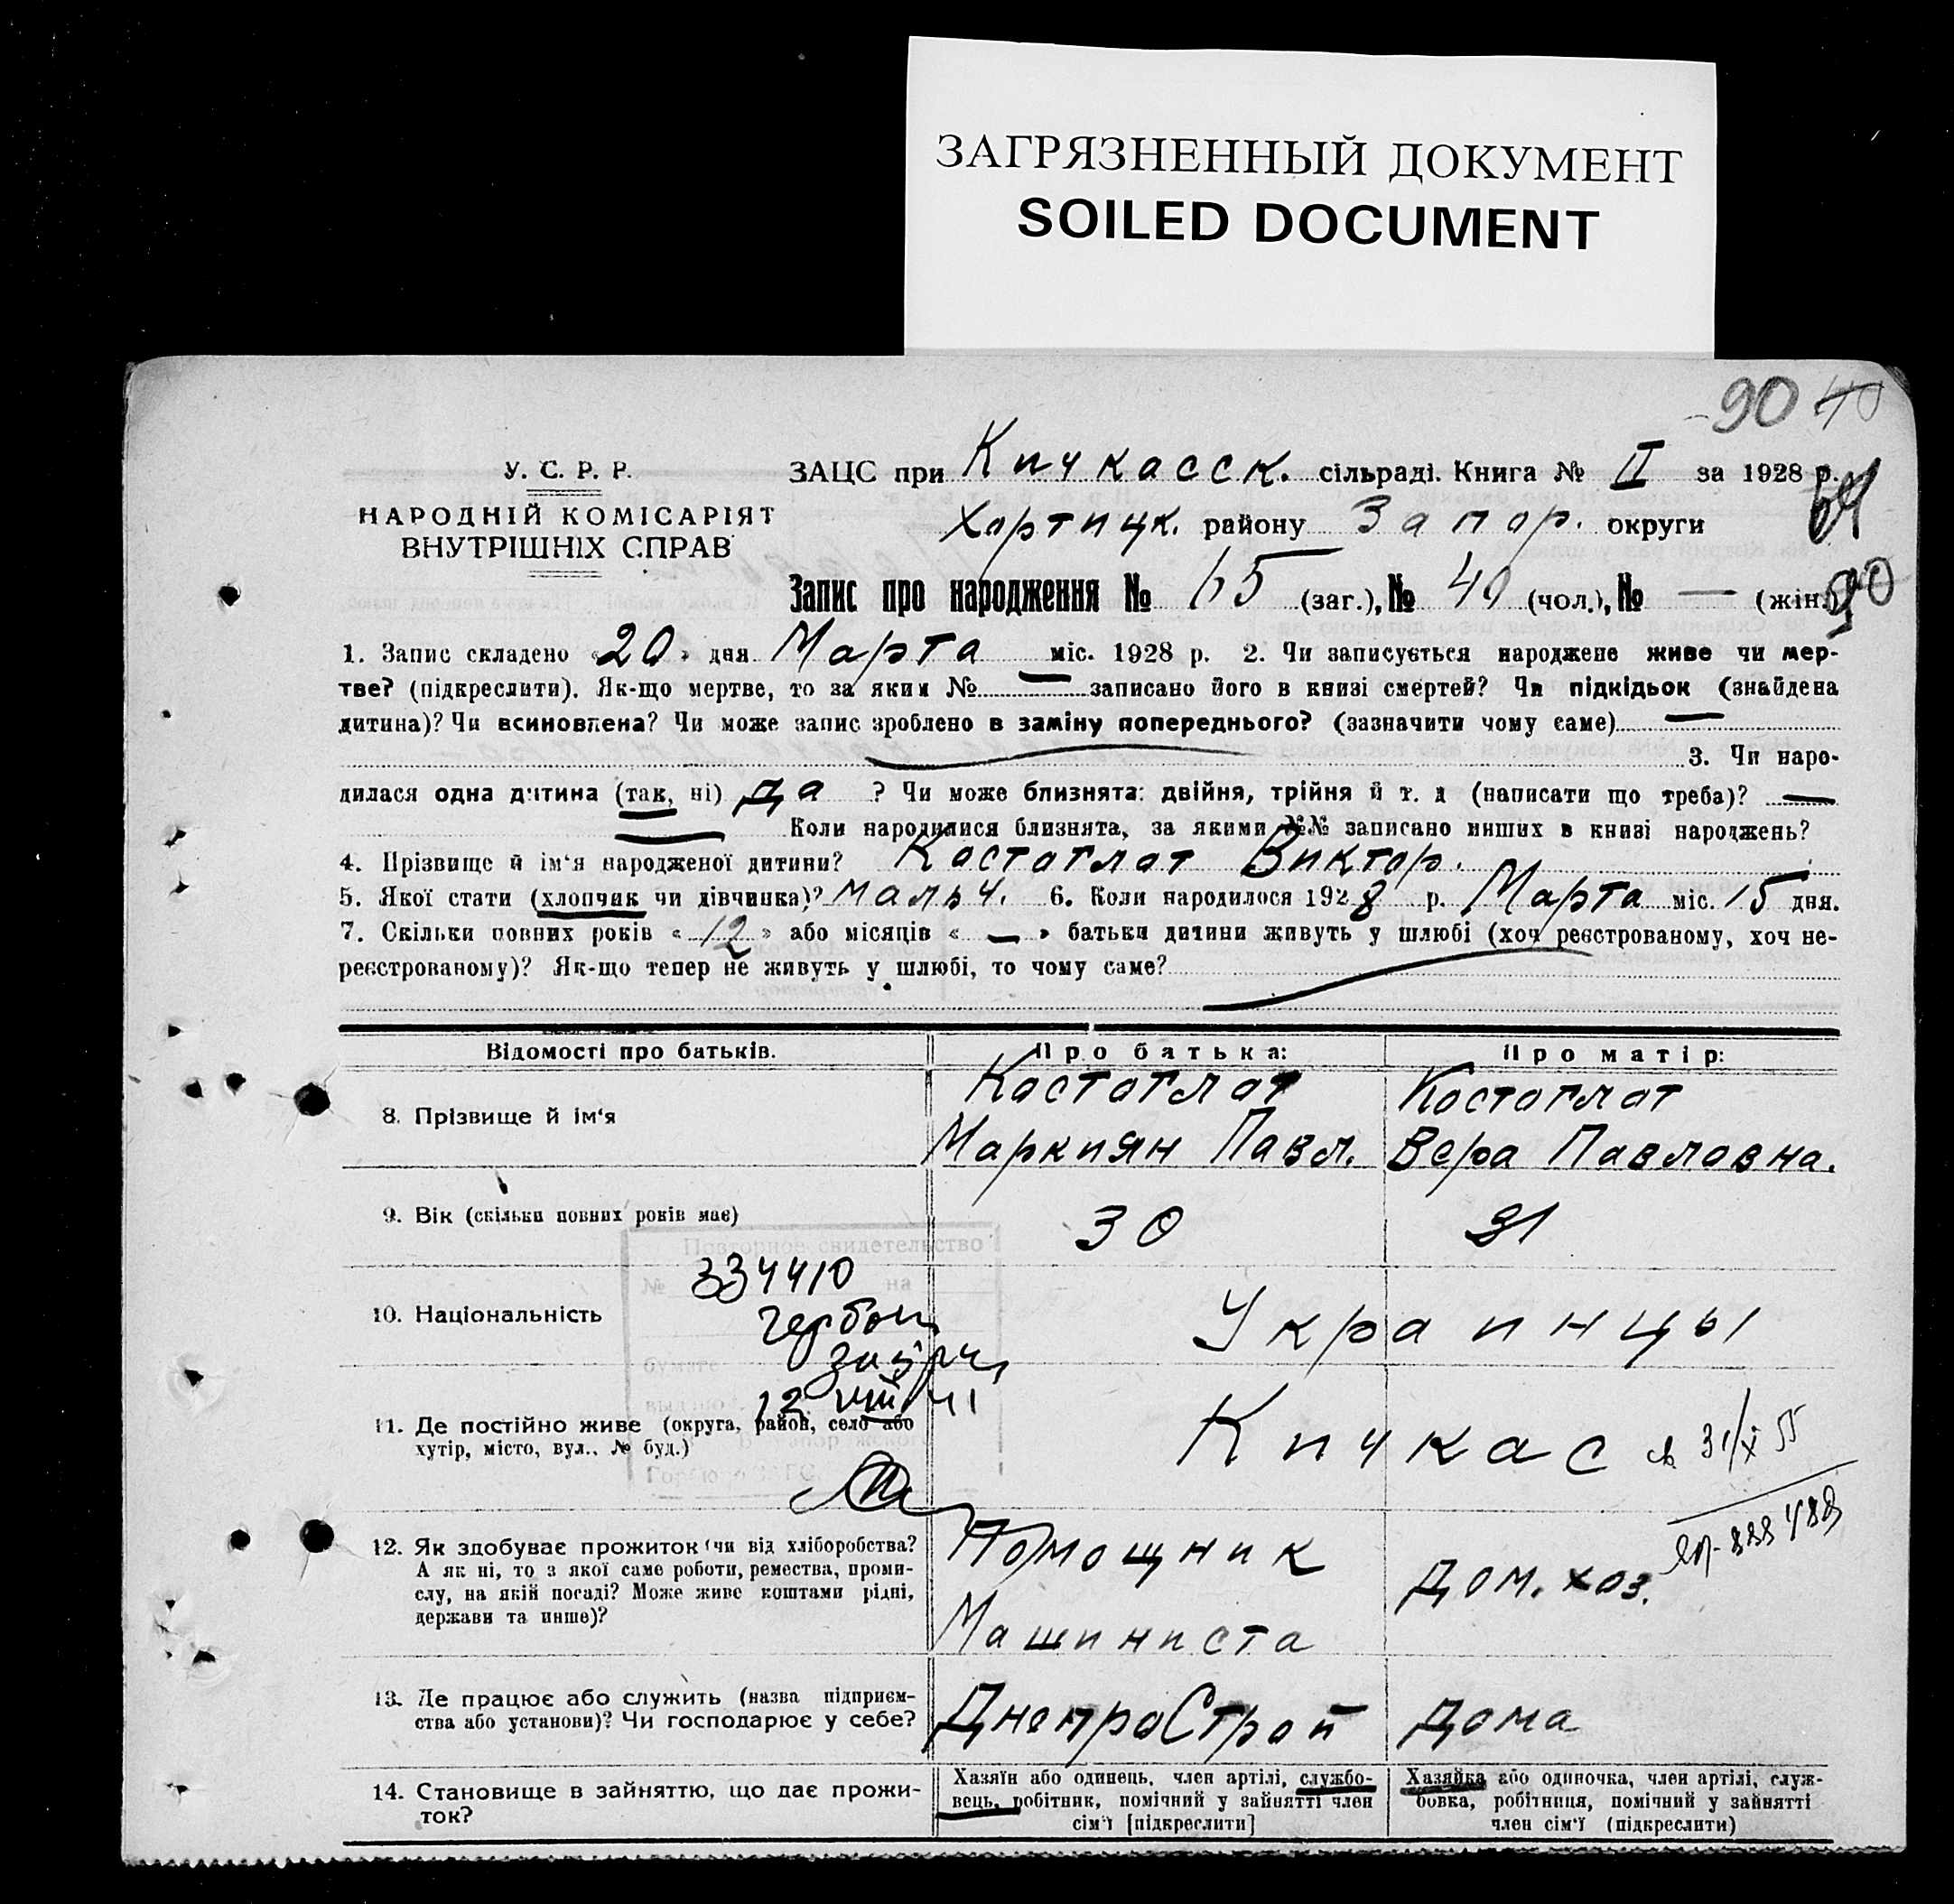 ЗАГРЯЗНЕННЫЙ ДОКУМЕНТ
SOILED DOCUMENT
90 40
У. С. Р. Р.
НАРОДНІЙ КОМІСАРІЯТ
ВНУТРІШНІХ СПРАВ
ЗАЦС при Кичкасск. сільраді. Книга № II за 1928 р.
Хортицк. району Запор. округи
Запис про народження № 65 (заг.), № 40 (чол.), № — (жін.)
90
1. Запис складено «20» дня Марта міс. 1928 р. 2. Чи записується народжене живе чи мер-
тве? (підкреслити). Як-що мертве, то за яким № — записано його в книзі смертей? Чи підкідьок (знайдена
дитина)? Чи всиновлена? Чи може запис зроблено в заміну попереднього? (зазначити чому саме) —
3. Чи наро-
дилася одна дитина (так, ні) Да ? Чи може близнята: двійня, трійня й т. д (написати що треба)? —
— Коли народилися близнята, за якими №№ записано инших в книзі народжень?
4. Прізвище й ім'я народженої дитини? Костоглот Виктор.
5. Якої стати (хлопчик чи дівчинка)? мальч. 6. Коли народилося 1928 р. Марта міс. 15 дня.
7. Скільки повних років «12» або місяців «—» батьки дитини живуть у шлюбі (хоч реєстрованому, хоч не-
реєстрованому)? Як-що тепер не живуть у шлюбі, то чому саме?
Відомості про батьків. Про батька: Про матір:
8. Прізвище й ім'я
Костоглот
Маркиян Павл.
Костоглот
Вера Павловна.
9. Вік (скільки повних років має) 30 31
Повторное свидетельство
№ 334410 на
10. Національність Украинцы
бумаге
11. Де постійно живе (округа, район, село або
хутір, місто, вул., № буд.)
Кичкас
31/X 55
12. Як здобуває прожиток (чи від хліборобства?
А як ні, то з якої саме роботи, ремества, проми-
слу, на якій посаді? Може живе коштами рідні,
держави та инше)?
Помощник
Машиниста
Дом. хоз.
13. Де працює або служить (назва підприєм-
ства або установи)? Чи господарює у себе?
ДнепроСтрой
Дома
14. Становище в зайняттю, що дає прожи-
ток?
Хазяїн або одинець, член артілі, службо-
вець, робітник, помічний у зайнятті член
сім'ї [підкреслити]
Хазяйка або одиночка, член артілі, служ-
бовка, робітниця, помічний у зайнятті
член сім'ї (підкреслити)